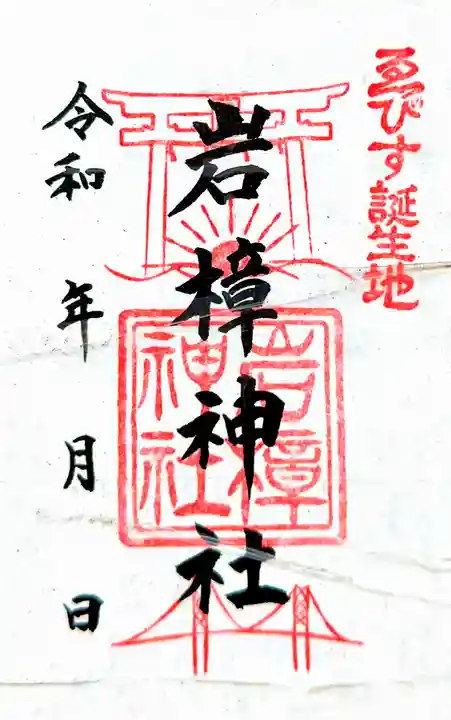 ゑびす誕生地
岩樟神社
岩樟
神社
令和 年 月 日